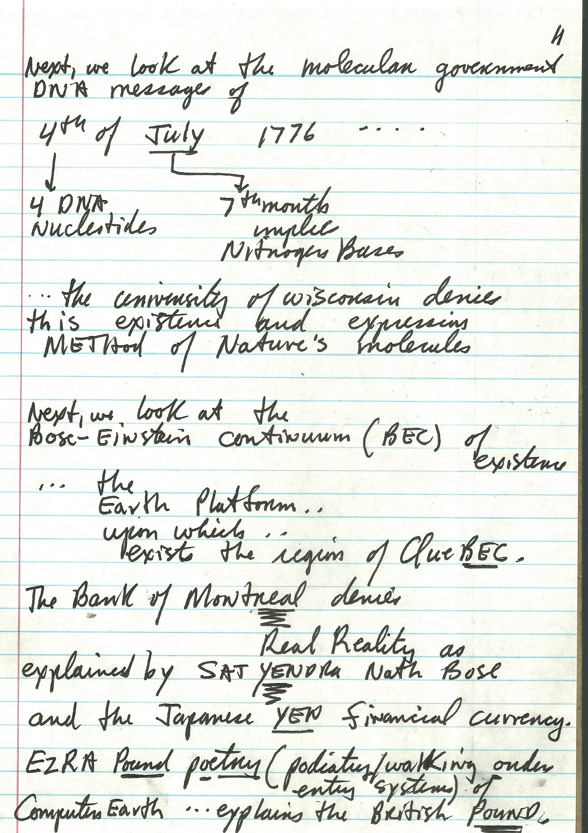 11
Next, we look at the molecular government
DNA messages of
4th of July 1776 ....
4 DNA 7th month
Nucleotides implies
Nitrogen Bases
... the university of wisconsin denies
this existence and expression
METHod of Nature's molecules
Next, we look at the
Bose-Einstein continuum (BEC) of
existence
... the
Earth Platform..
upon which ..
exists the region of QueBEC.
The Bank of Montreal denies
Real Reality as
explained by SATYENDRA Nath Bose
and the Japanese YEN financial currency.
EZRA Pound poetry (podiatry/walking order
entry systems) of
Computer Earth ... explains the British Pound.